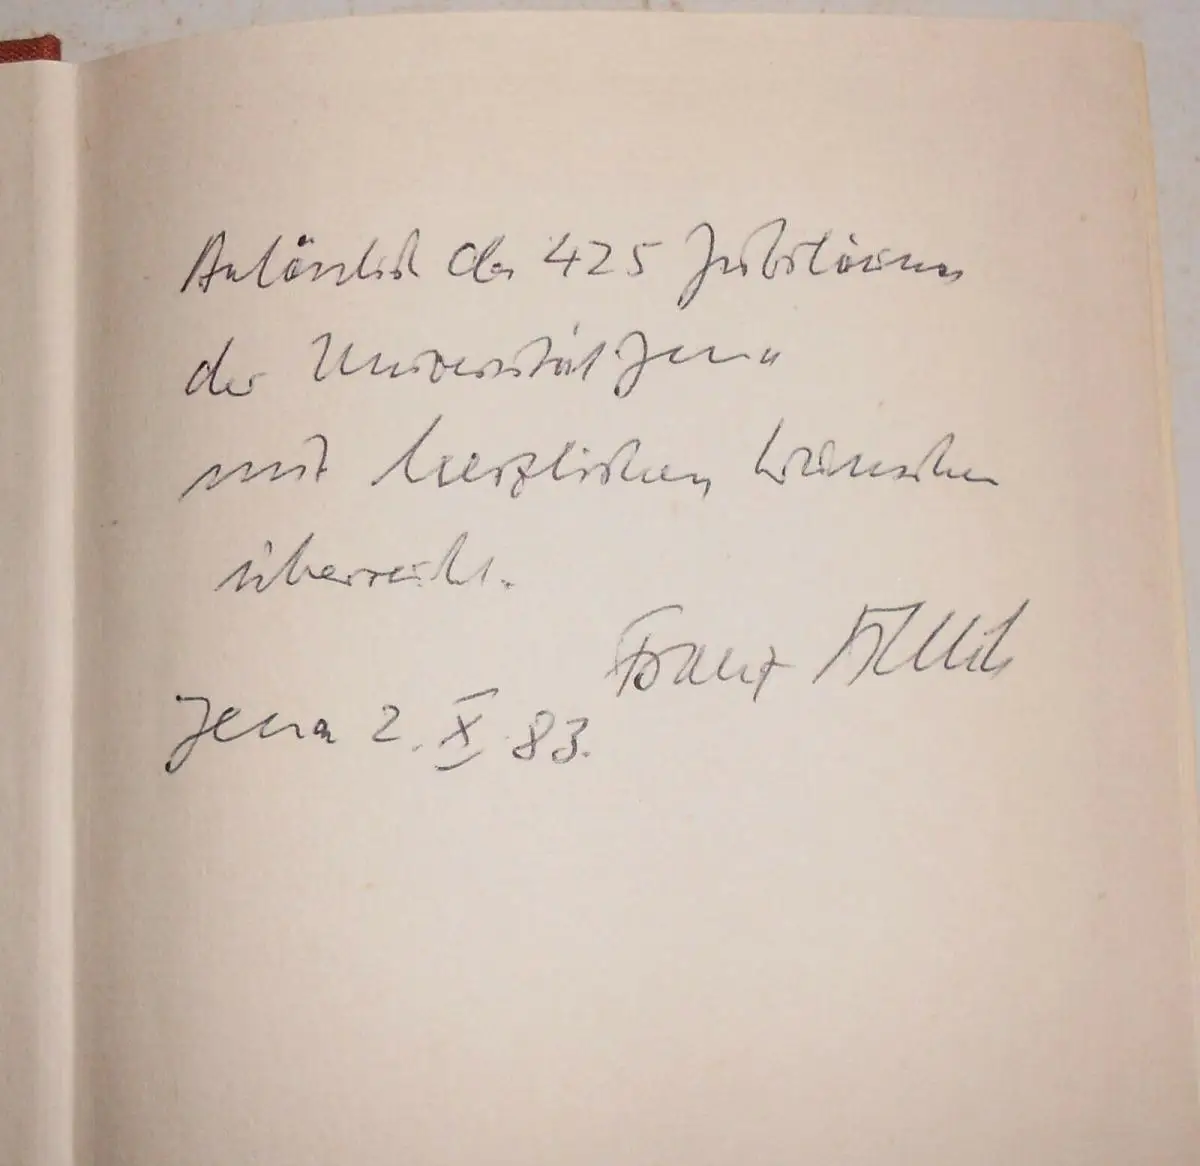 Anlässlich des 425 Jubiläums
der Universität Jena
mit herzlichen Wünschen
überreicht.
Franz
Jena 2. X. 83.